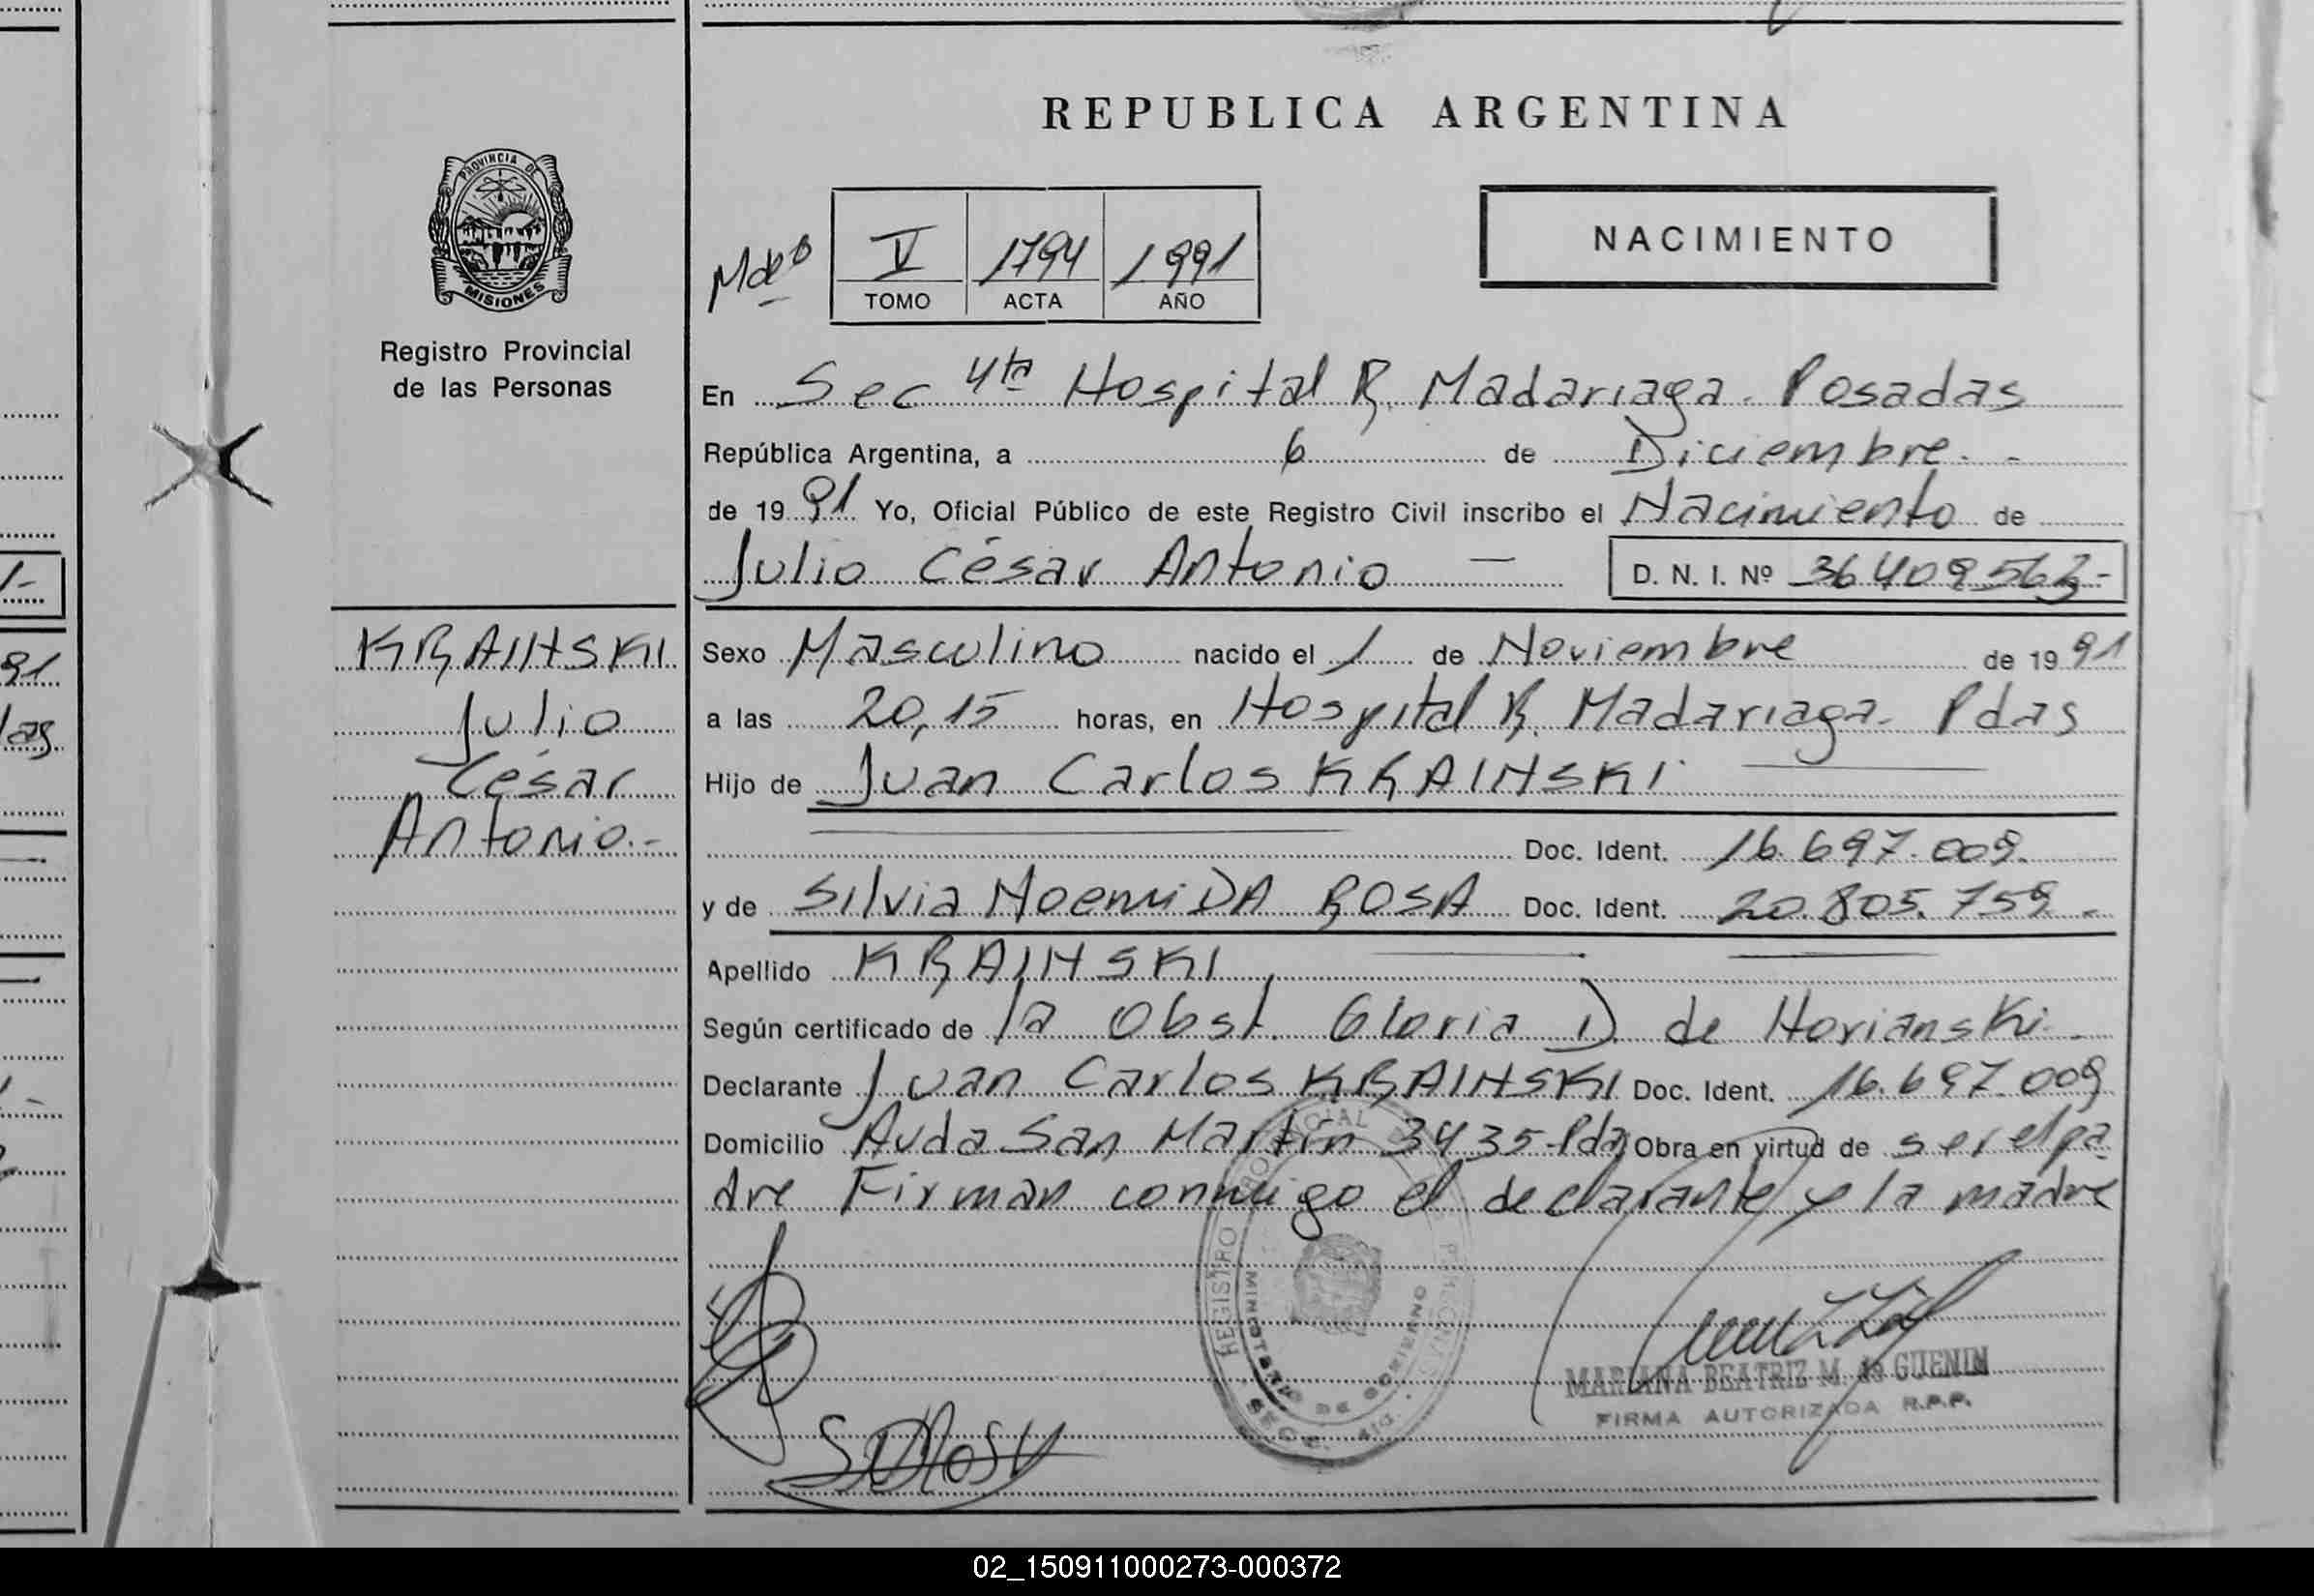 REPUBLICA ARGENTINA
PROVINCIA DE
MISIONES
Registro Provincial
de las Personas
V 1794 1991
TOMO ACTA AÑO
NACIMIENTO
En Sec 4ta Hospital R. Madariaga. Posadas
República Argentina, a 6 de Diciembre.-
de 1991 Yo, Oficial Público de este Registro Civil inscribo el Nacimiento de
Julio César Antonio — D. N. I. Nº 36409563-
KRAINSKI
Julio
César
Antonio.-
Sexo Masculino nacido el 1 de Noviembre de 1991
a las 20,15 horas, en Hospital R. Madariaga- Pdas
Hijo de Juan Carlos KRAINSKI
Doc. Ident. 16.697.009.
y de Silvia Noemi DA ROSA Doc. Ident. 20.805.759-
Apellido KRAINSKI
Según certificado de la Obst. Gloria D. de Horianski
Declarante Juan Carlos KRAINSKI Doc. Ident. 16.697.009
Domicilio Avda San Martín 3435-Pdas Obra en virtud de ser el pa-
dre Firman conmigo el declarante y la madre
REGISTRO PROVINCIAL DE PERSONAS
MINISTERIO DE GOBIERNO
MARIANA BEATRIZ M. de GUENIN
FIRMA AUTORIZADA R.P.P.
02_150911000273-000372